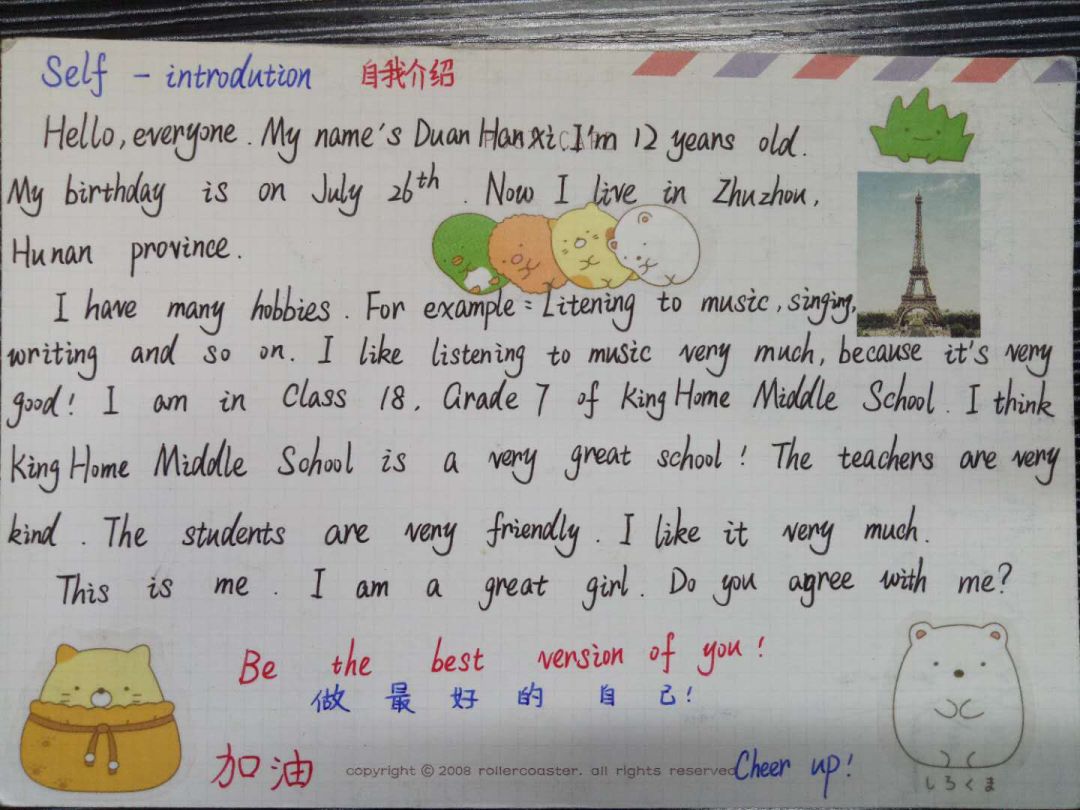 Self - introdution 自我介绍
Hello, everyone. My name's Duan Han xi I'm 12 years old.
My birthday is on July 26th. Now I live in Zhuzhou,
Hunan province.
I have many hobbies. For example: Litening to music, singing,
writing and so on. I like listening to music very much, because it's very
good! I am in Class 18, Grade 7 of King Home Middle School. I think
King Home Middle School is a very great school! The teachers are very
kind. The students are very friendly. I like it very much.
This is me. I am a great girl. Do you agree with me?
Be the best version of you!
做最好的自己!
加油 copyright © 2008 rollercoaster. all rights reserved Cheer up!
しろくま